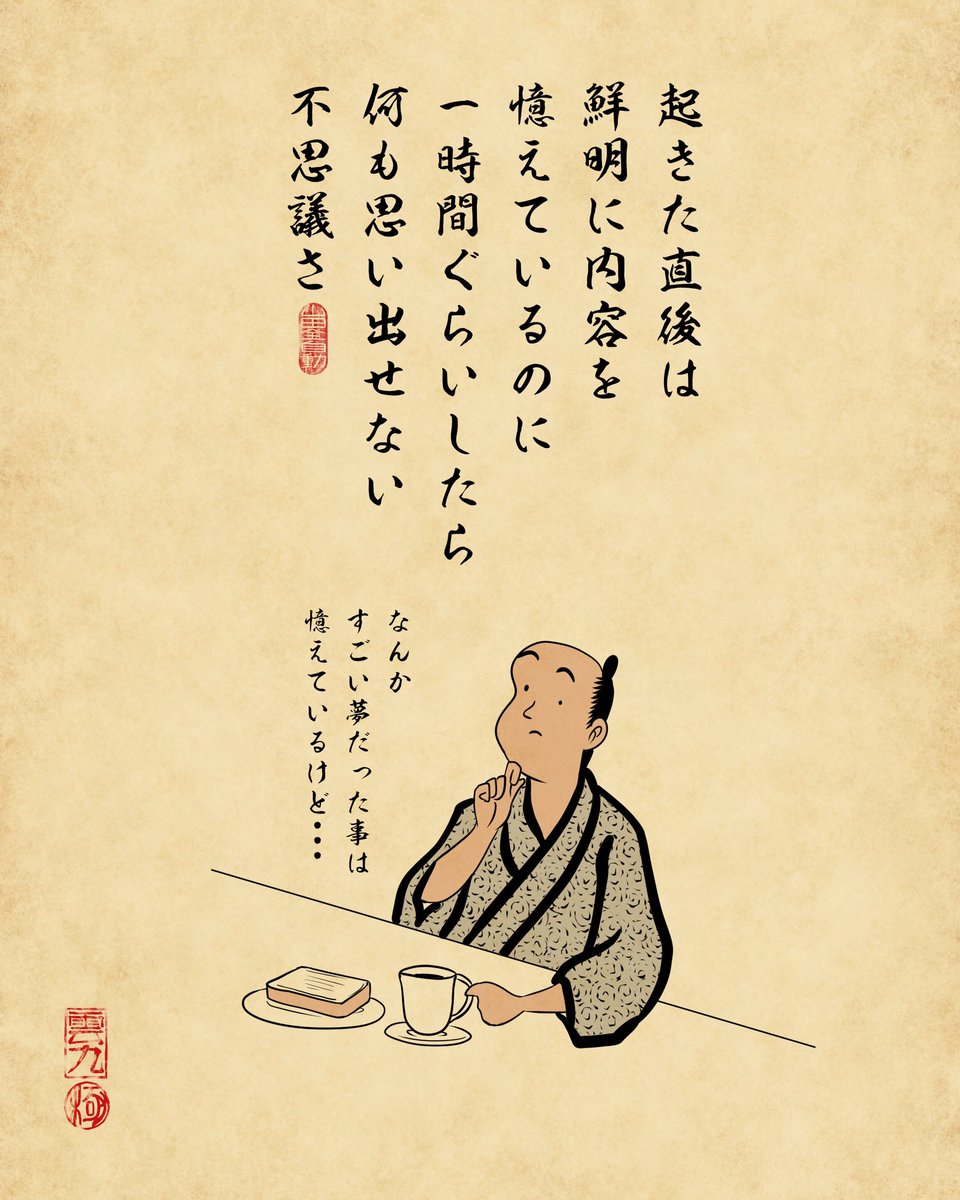 起きた直後は
鮮明に内容を
憶えているのに
一時間ぐらいしたら
何も思い出せない
不思議さ
なんか
すごい夢だった事は
憶えているけど・・・